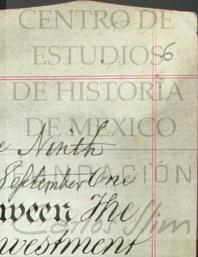 CENTRO DE
ESTUDIOS
6
DE HISTORIA
DE MEXICO
e Ninth
FUNDACIÓN
September One
ween The
Carlos Slim
nvestment